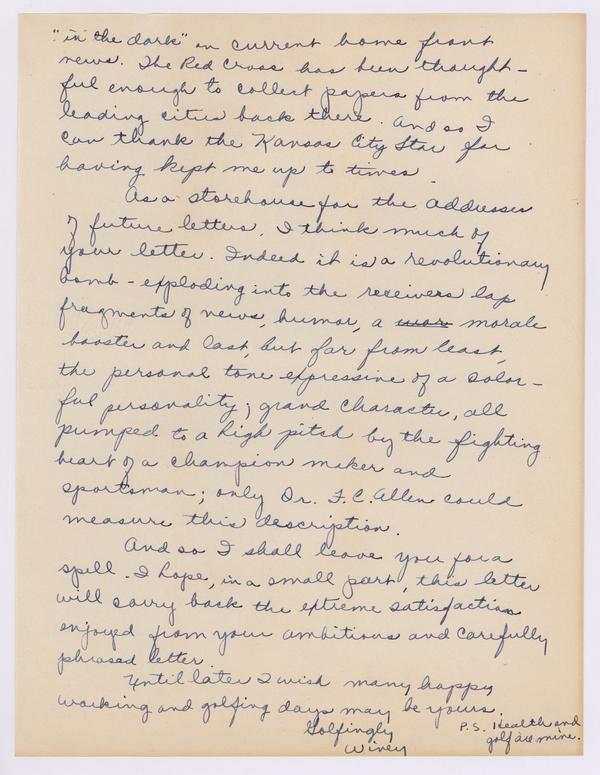 "in the dark" on current home front
news. The Red Cross has been thought-
ful enough to collect papers from the
leading cities back there. And so I
can thank the Kansas City Star for
having kept me up to times.
As a storehouse for the addresses
of future letters, I think much of
your letter. Indeed it is a revolutionary
bomb - exploding into the receivers lap
fragments of news, humor, a war morale
booster and last, but far from least,
the personal tone expressive of a color-
ful personality; grand character, all
pumped to a high pitch by the fighting
heart of a champion maker and
sportsman; only Dr. F.C. Allen could
measure this description.
And so I shall leave you for a
spell. I hope, in a small part, this letter
will carry back the extreme satisfaction
enjoyed from your ambitious and carefully
phrased letter.
Until later I wish many happy
working and golfing days may be yours.
Golfingly
Winey
P.S. Health and
golf are mine.